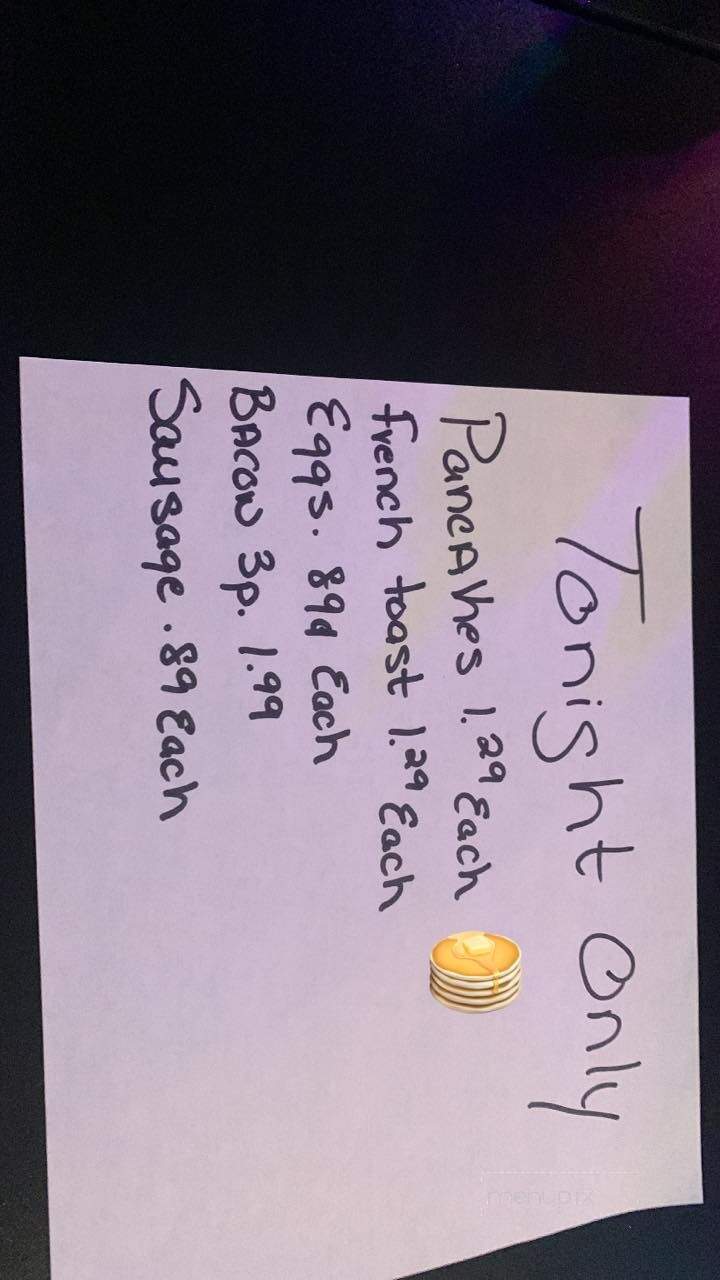 Tonight Only
PancAkes 1.29 Each
french toast 1.29 Each
Eggs. 89¢ Each
BACON 3p. 1.99
Sausage .89 Each
menupix